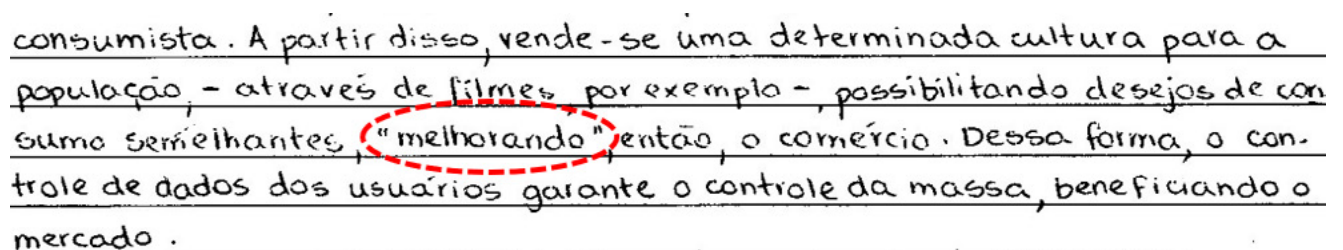 consumista. A partir disso, vende-se uma determinada cultura para a
população, - através de filmes, por exemplo -, possibilitando desejos de con
sumo semelhantes, "melhorando", então, o comércio. Dessa forma, o con-
trole de dados dos usuários garante o controle da massa, beneficiando o
mercado.